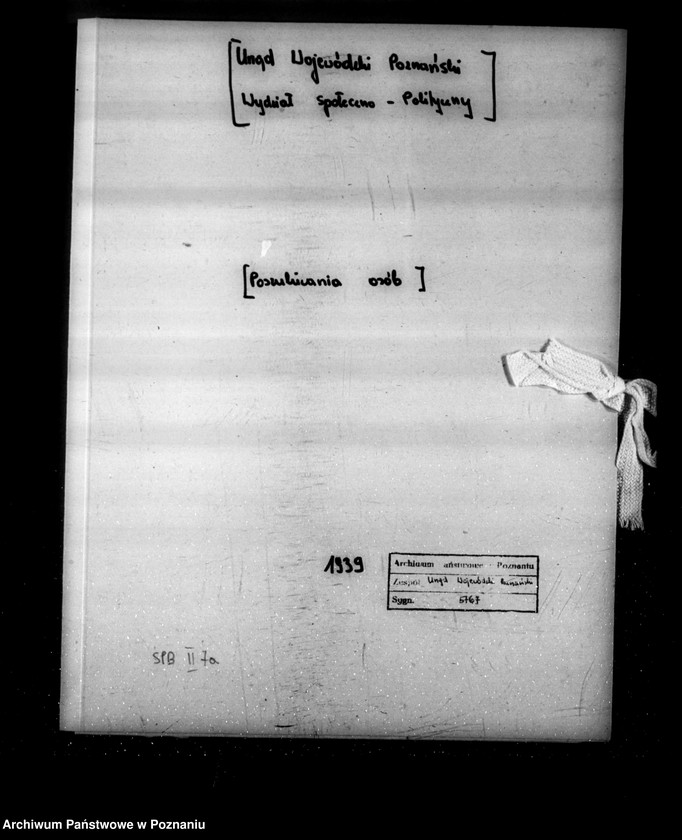 [Urząd Wojewódzki Poznański
Wydział Społeczno - Polityczny]
[Poszukiwania osób]
1939
Archiwum Państwowe Poznaniu
Zespół Urząd Wojewódzki Poznański
Sygn. 5767
SPB II 7a
Archiwum Państwowe w Poznaniu